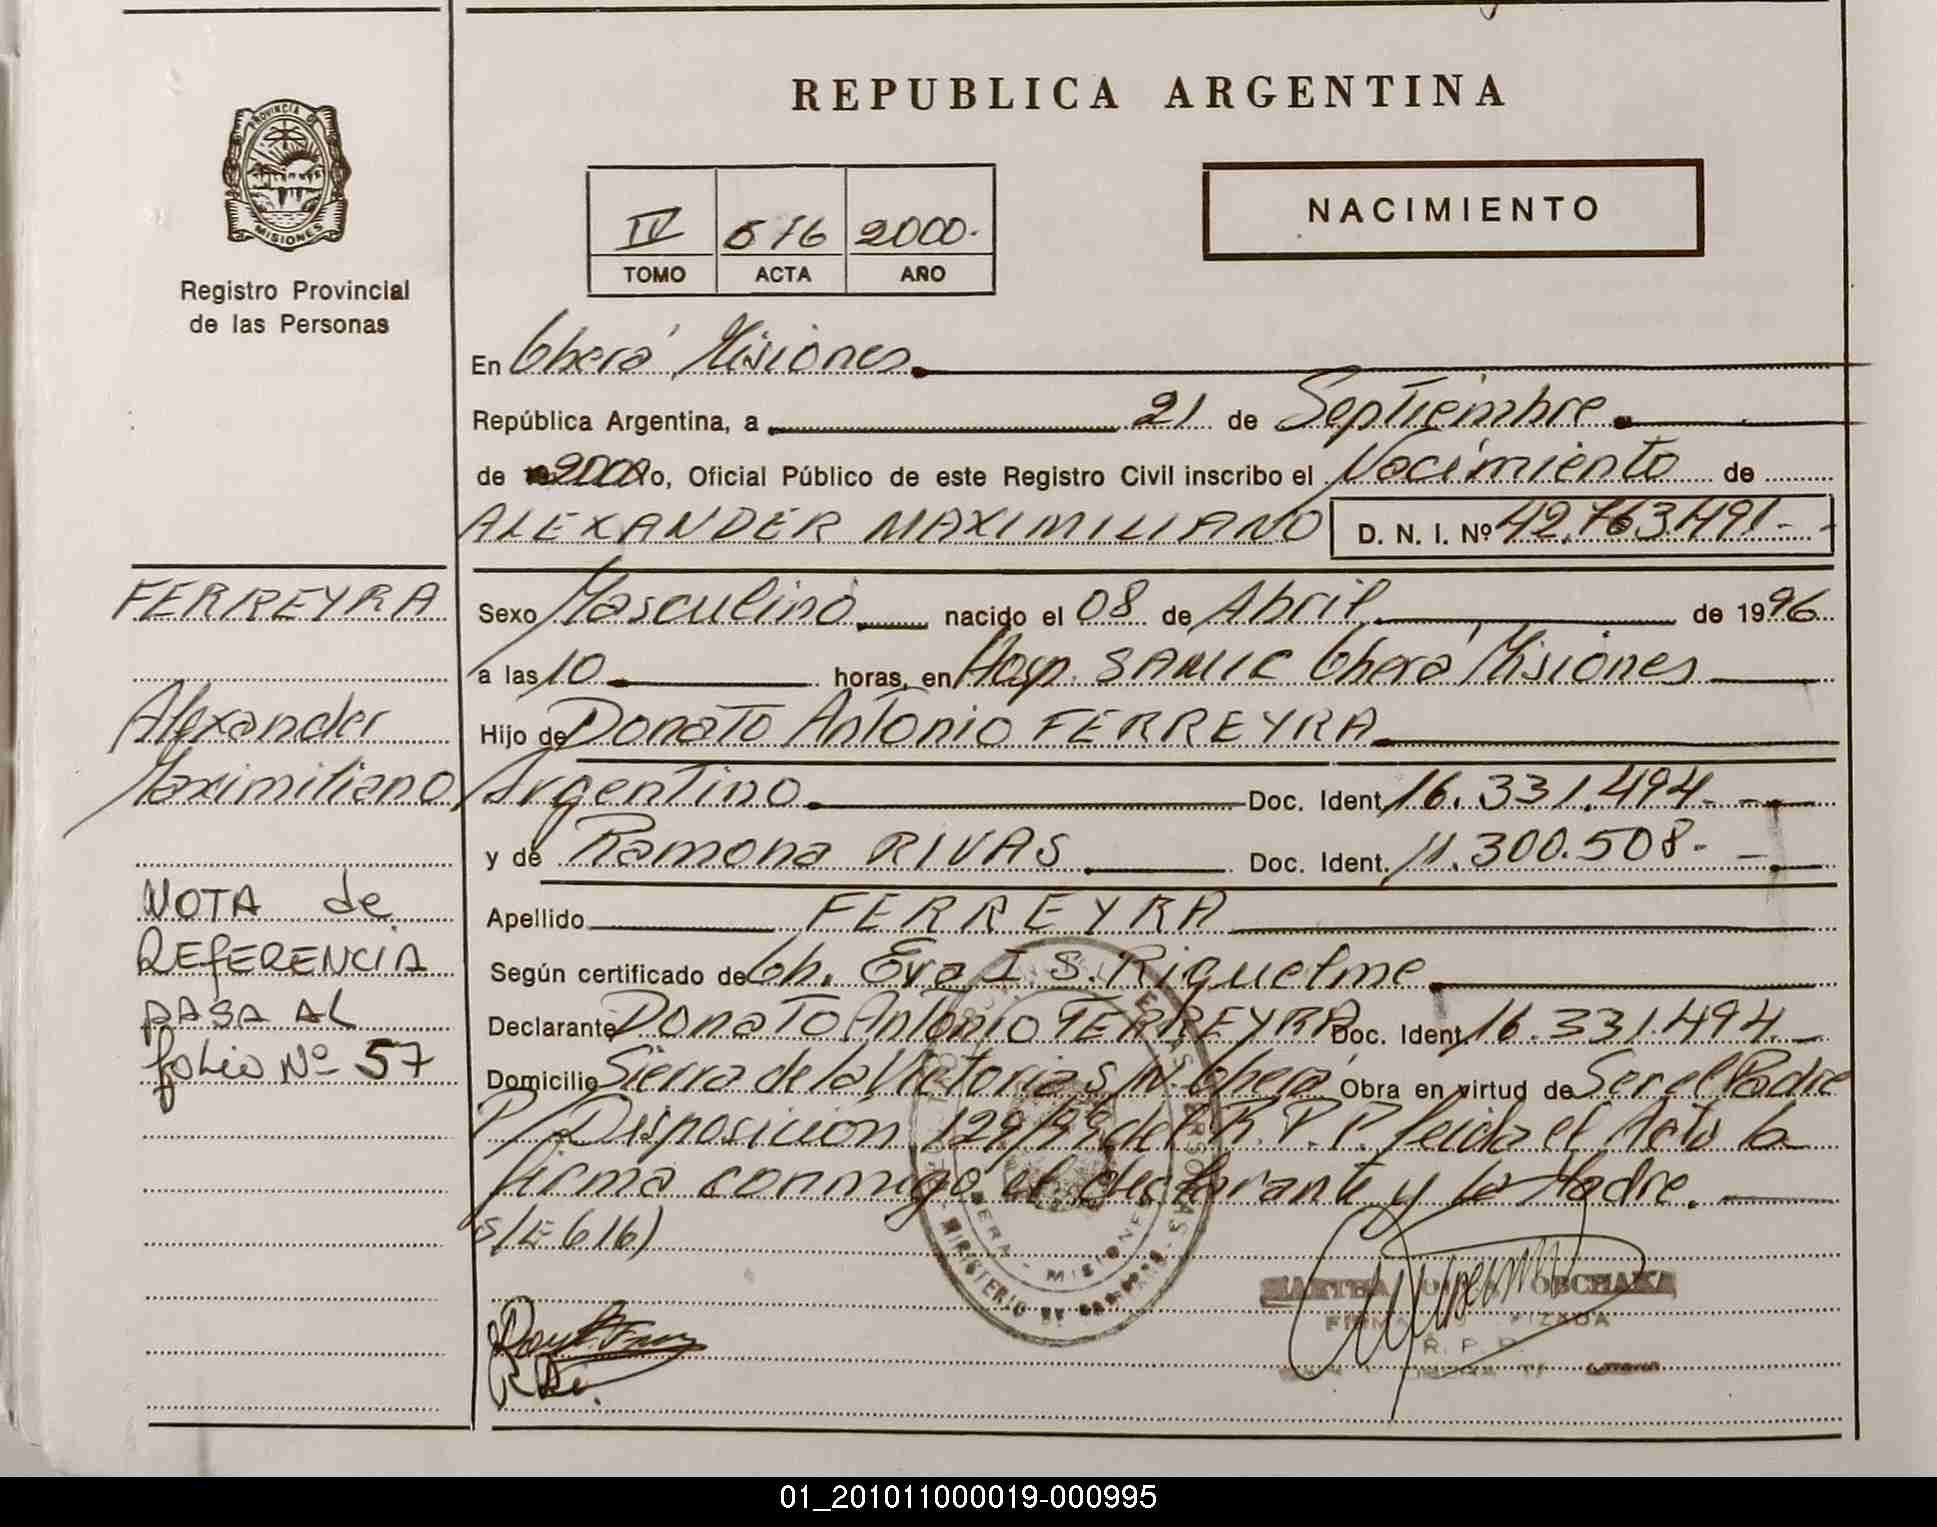 REPUBLICA ARGENTINA
PROVINCIA DE
MISIONES
Registro Provincial
de las Personas
IV 616 2000.
TOMO ACTA AÑO
NACIMIENTO
En Oberá, Misiones
República Argentina, a 21 de Septiembre
de 2000 o, Oficial Público de este Registro Civil inscribo el Nacimiento de
ALEXANDER MAXIMILIANO D. N. I. Nº 42.763.491.-
FERREYRA
Alexander
Maximiliano
NOTA de
REFERENCIA
PASA AL
folio Nº 57
Sexo Masculino nacido el 08 de Abril de 1996
a las 10 horas, en Hosp. SAMIC Oberá Misiones
Hijo de Donato Antonio FERREYRA
Argentino Doc. Ident. 16.331.494.-
y de Ramona RIVAS Doc. Ident. 11.300.508.-
Apellido FERREYRA
Según certificado de Ob. Eva I. S. Riquelme
Declarante Donato Antonio FERREYRA Doc. Ident. 16.331.494.-
Domicilio Sierra de la Victoria S/N. Oberá Obra en virtud de Ser el Padre
P/ Disposición 129/99 del R.P.P. leída el Acta la
firma conmigo el declarante y la Madre.
S/E 616)
MISIONES
MINISTERIO DE
FIRMA
R. P. P.
01_201011000019-000995